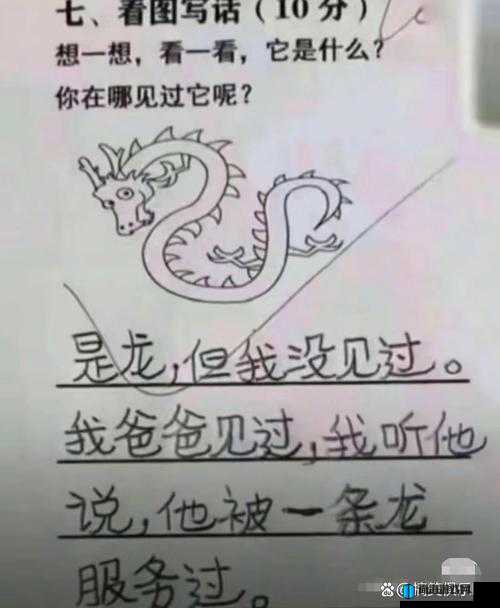 七、看图写话(10分)
想一想，看一看，它是什么?
你在哪见过它呢?
是龙,但我没见过。
我爸爸见过,我听他
说,他被一条龙
服务过。